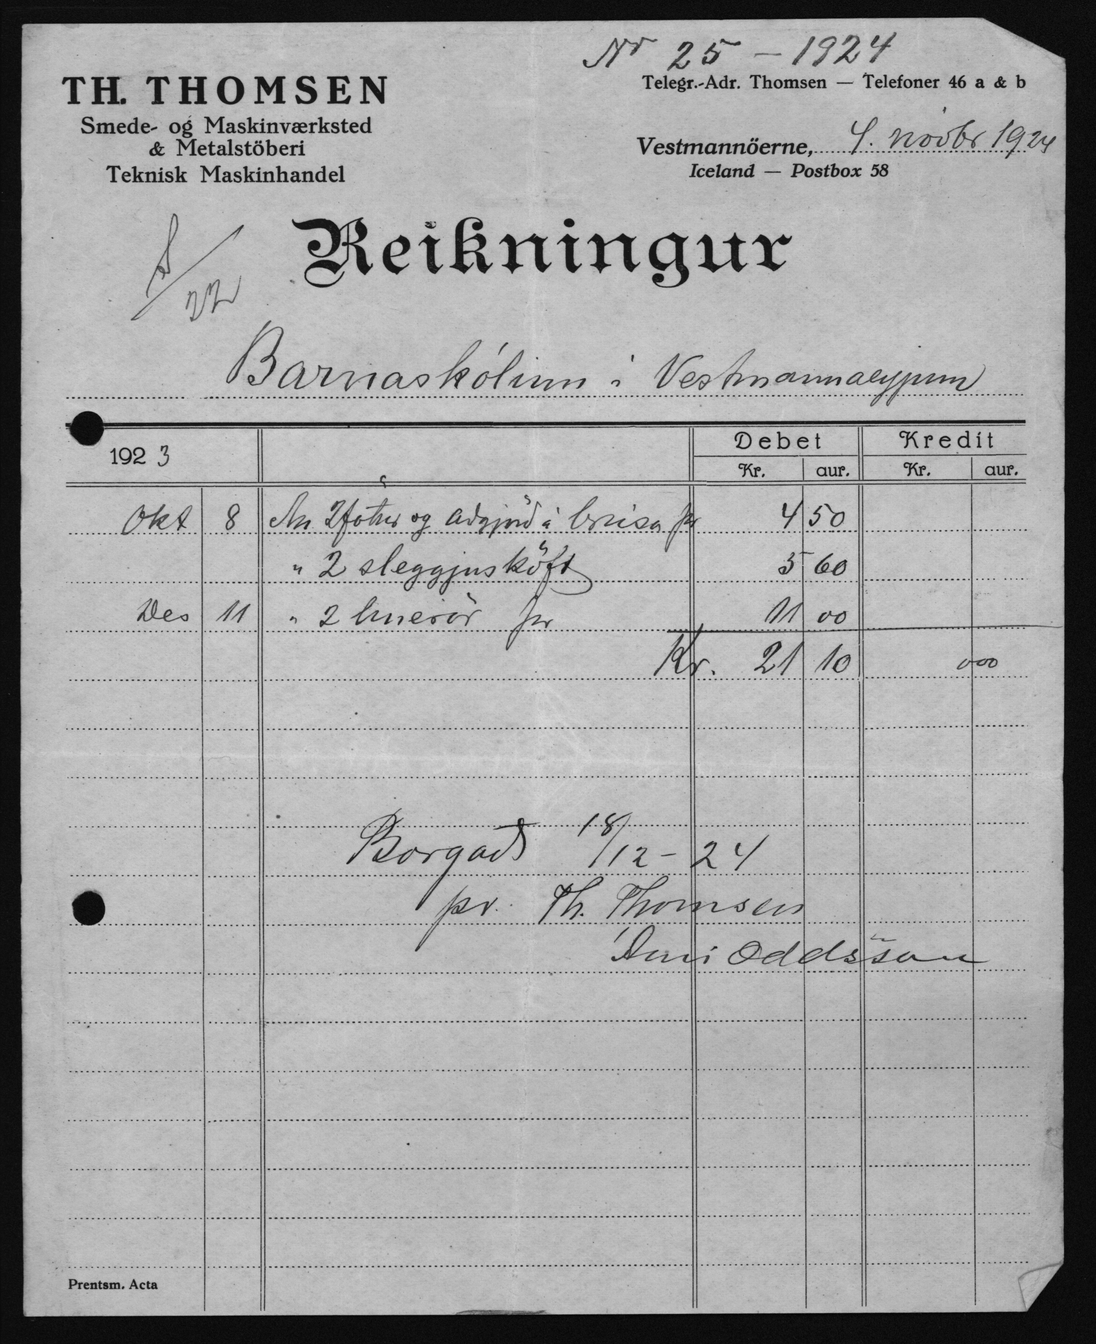 Nr 25 - 1924
TH. THOMSEN
Telegr.-Adr. Thomsen — Telefoner 46 a & b
Smede- og Maskinværksted
& Metalstöberi
Teknisk Maskinhandel
Vestmannöerne, 4. novbr 1924
Iceland — Postbox 58
Reikningur
22
Barnaskólinn í Vestmannaeyjum
Debet Kredit
1923
Kr. aur. Kr. aur.
Okt 8 An 2 fötur og aðgjörð á brúsa pr 4 50
" 2 sleggjusköft 5 60
Des 11 " 2 pr 11 00
Kr. 21 10 000
Borgað 18/12 - 24
pr. Th. Thomsen
Árni Oddsson
Prentsm. Acta